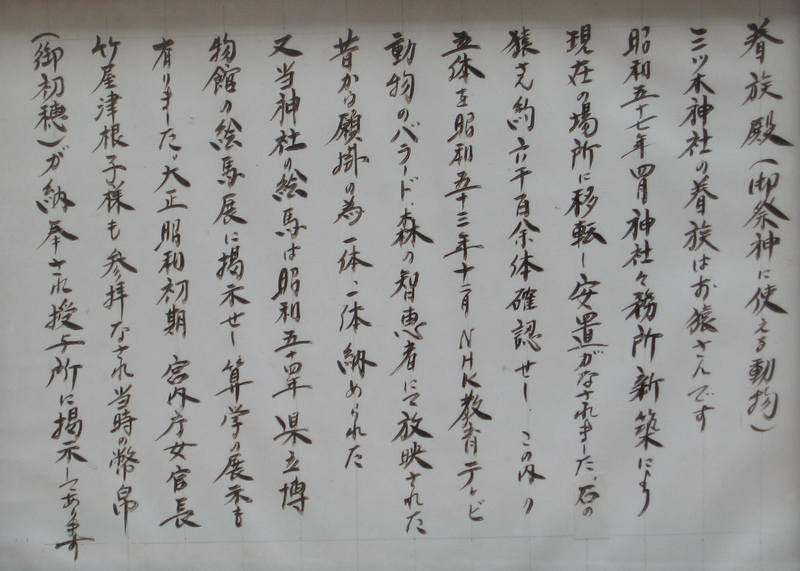 眷族殿(御祭神に使える動物)
三ツ木神社の眷族はお猿さんです
昭和五十七年四月神社々務所新築により
現在の場所に移転し安置がなされました、石の
猿さん約六千百余体確認せし、この内の
五体を昭和五十三年十二月NHK教育テレビ
動物のバラード、森の智恵者にて放映された
昔から願掛の為一体、一体納められた
又当神社の絵馬は昭和五十四年県立博
物館の絵馬展に掲示せし算学の展示も
有りました。大正昭和初期宮内庁女官長
竹屋津根子様も参拝なされ当時の幣帛
(御初穂)が納奉され授与所に掲示してあります